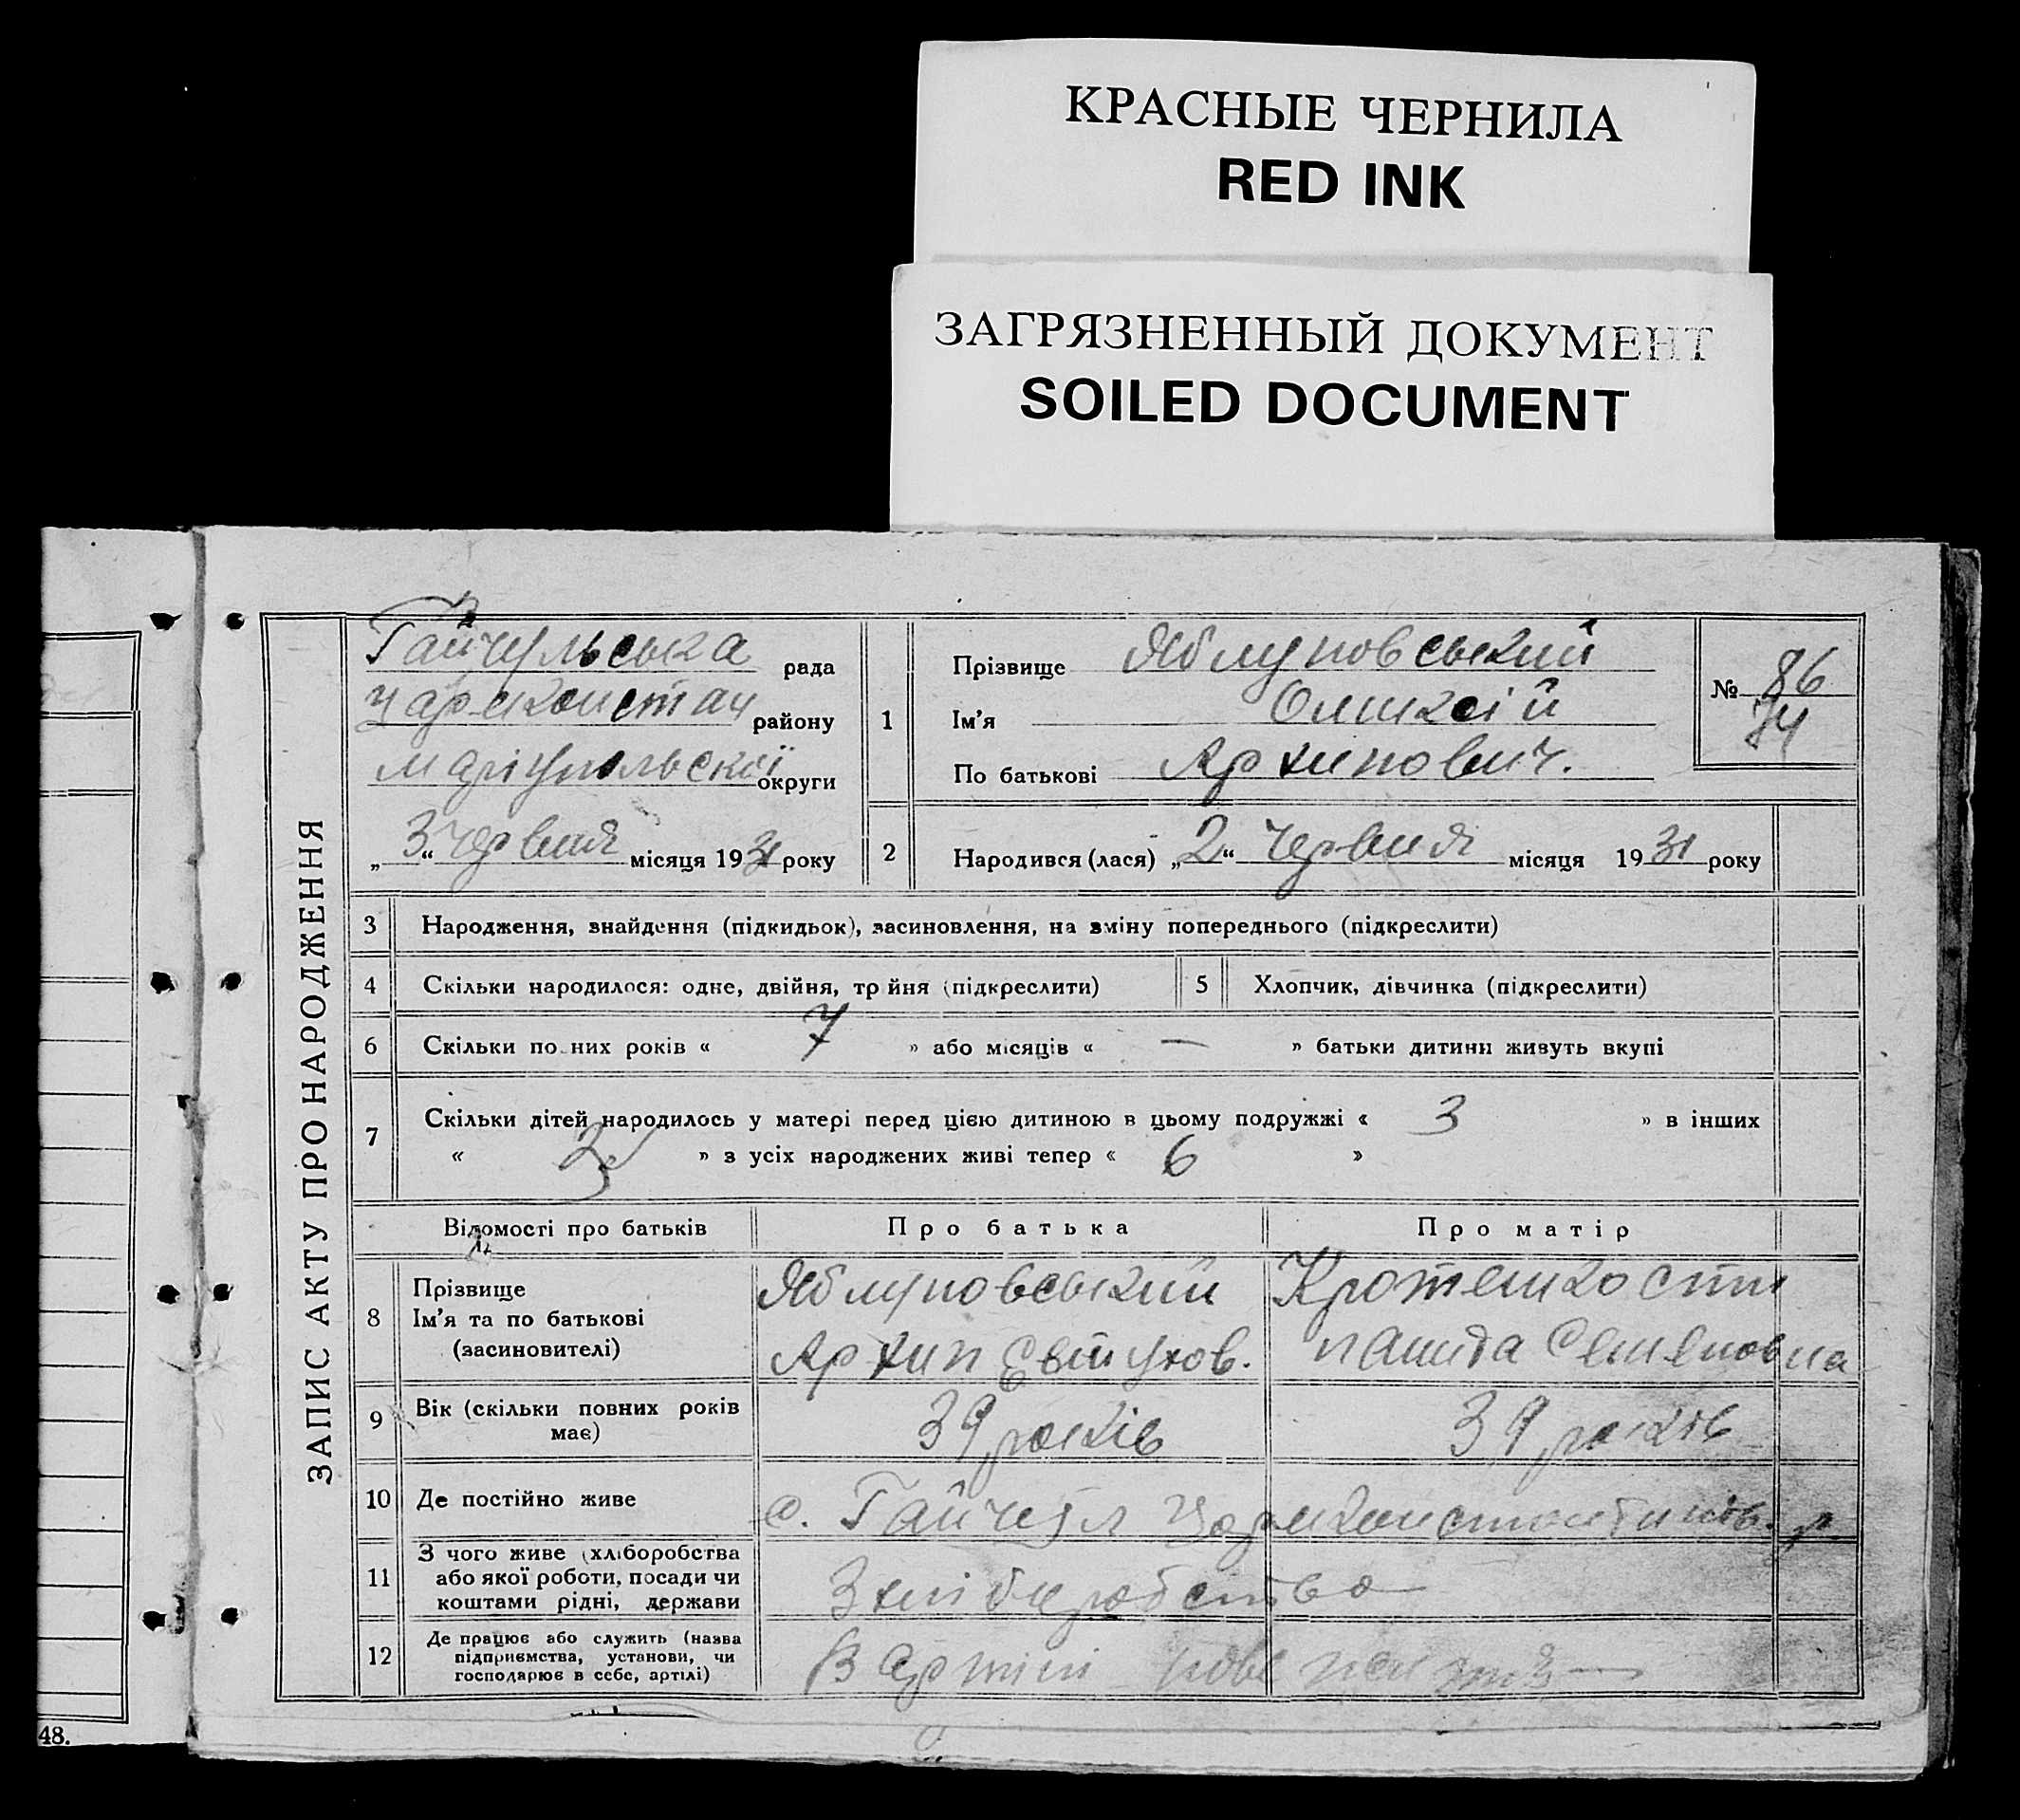 КРАСНЫЕ ЧЕРНИЛА
RED INK
ЗАГРЯЗНЕННЫЙ ДОКУМЕНТ
SOILED DOCUMENT
ЗАПИС АКТУ ПРО НАРОДЖЕННЯ
Гайчульська рада
Царекостан району
маріупольскої округи
„3“ червня місяця 1931 року
№ 86
74
1
Прізвище Яблуновський
Ім'я Оликсій
По батькові Архипович.
2 Народився (лася) „2“ червня місяця 1931 року
3 Народження, знайдення (підкидьок), засиновлення, на зміну попереднього (підкреслити)
4 Скільки народилося: одне, двійня, тр йня (підкреслити)
5 Хлопчик, дівчинка (підкреслити)
6 Скільки по них років « 7 » або місяців « — » батьки дитини живуть вкупі
7 Скільки дітей народилось у матері перед цією дитиною в цьому подружжі « 3 » в інших
« 3 » з усіх народжених живі тепер « 6 »
Відомості про батьків Про батька Про матір
8 Прізвище
Ім'я та по батькові
(засиновителі)
Яблуновський
Архип Євтухов.
Семеновна
9 Вік (скільки повних років
має)
39 років 39 років
10 Де постійно живе с. Гайчул Царекостонтинов. р.
11 З чого живе (хліборобства
або якої роботи, посади чи
коштами рідні, держави
З хліборобства
12 Де працює або служить (назва
підприємства, установи, чи
господарює в себе, артілі)
В артілі нове
48.